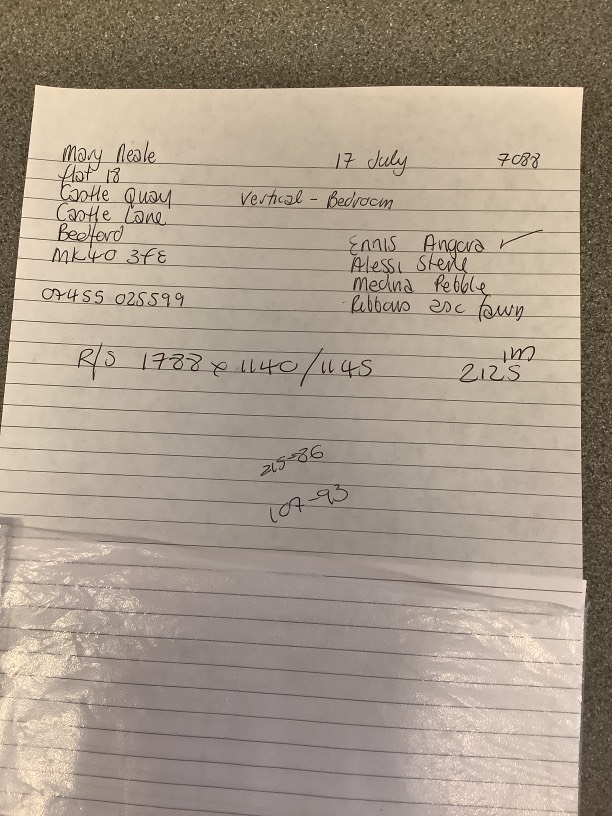 Mary Neale
17 July
7088
flat 18
Castle Quay
Vertical - Bedroom
Castle Lane
Bedford
Ennis Angora ✓
MK40 3FE
Alessi Sterle
Medina Pebble
07455 025599
Ribbons 20c fawn
R/S 1788 x 1140/1145
2125
1m
215-86
107-93